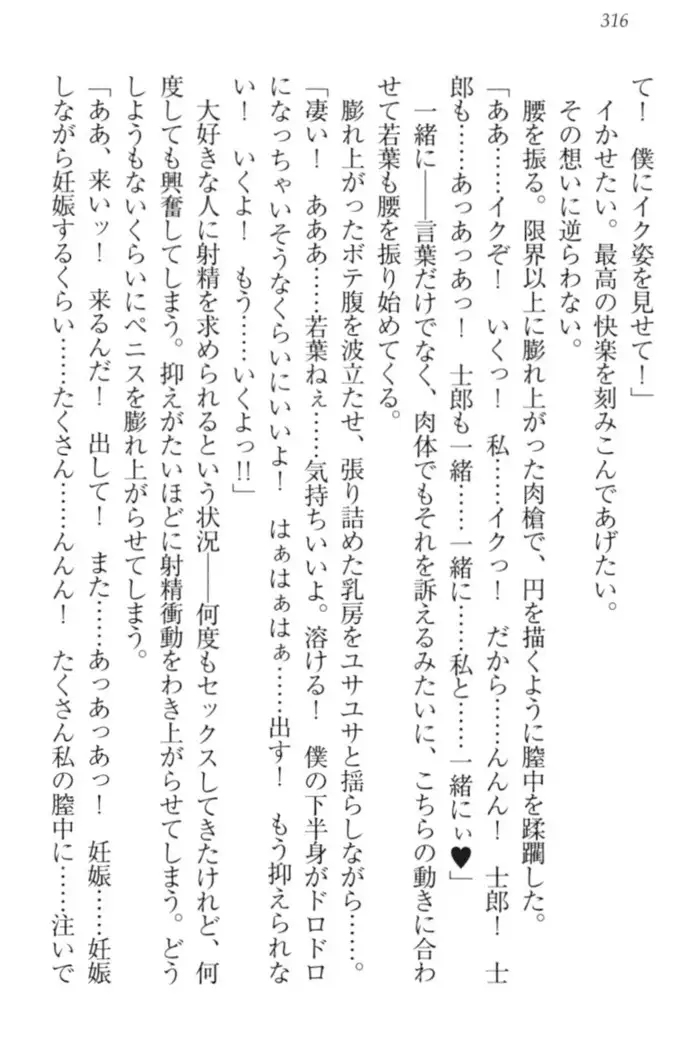 316
て！　僕にイク姿を見せて！」
イかせたい。最高の快楽を刻みこんであげたい。
その想いに逆らわない。
腰を振る。限界以上に膨れ上がった肉槍で、円を描くように膣中を蹂躙した。
「ああ……イクぞ！　いくっ！　私……イクっ！　だから……んんん！　士郎！　士
郎も……あっあっあっ！　士郎も一緒……一緒に……私と……一緒にぃ♥」
一緒に――言葉だけでなく、肉体でもそれを訴えるみたいに、こちらの動きに合わ
せて若葉も腰を振り始めてくる。
膨れ上がったボテ腹を波立たせ、張り詰めた乳房をユサユサと揺らしながら……。
「凄い！　あああ……若葉ねぇ……気持ちいいよ。溶ける！　僕の下半身がドロドロ
になっちゃいそうなくらいにいいよ！　はぁはぁはぁ……出す！　もう抑えられな
い！　いくよ！　もう……いくよっ!!」
大好きな人に射精を求められるという状況――何度もセックスしてきたけれど、何
度しても興奮してしまう。抑えがたいほどに射精衝動をわき上がらせてしまう。どう
しようもないくらいにペニスを膨れ上がらせてしまう。
「ああ、来いッ！　来るんだ！　出して！　また……あっあっあっ！　妊娠……妊娠
しながら妊娠するくらい……たくさん……んんん！　たくさん私の膣中に……注いで